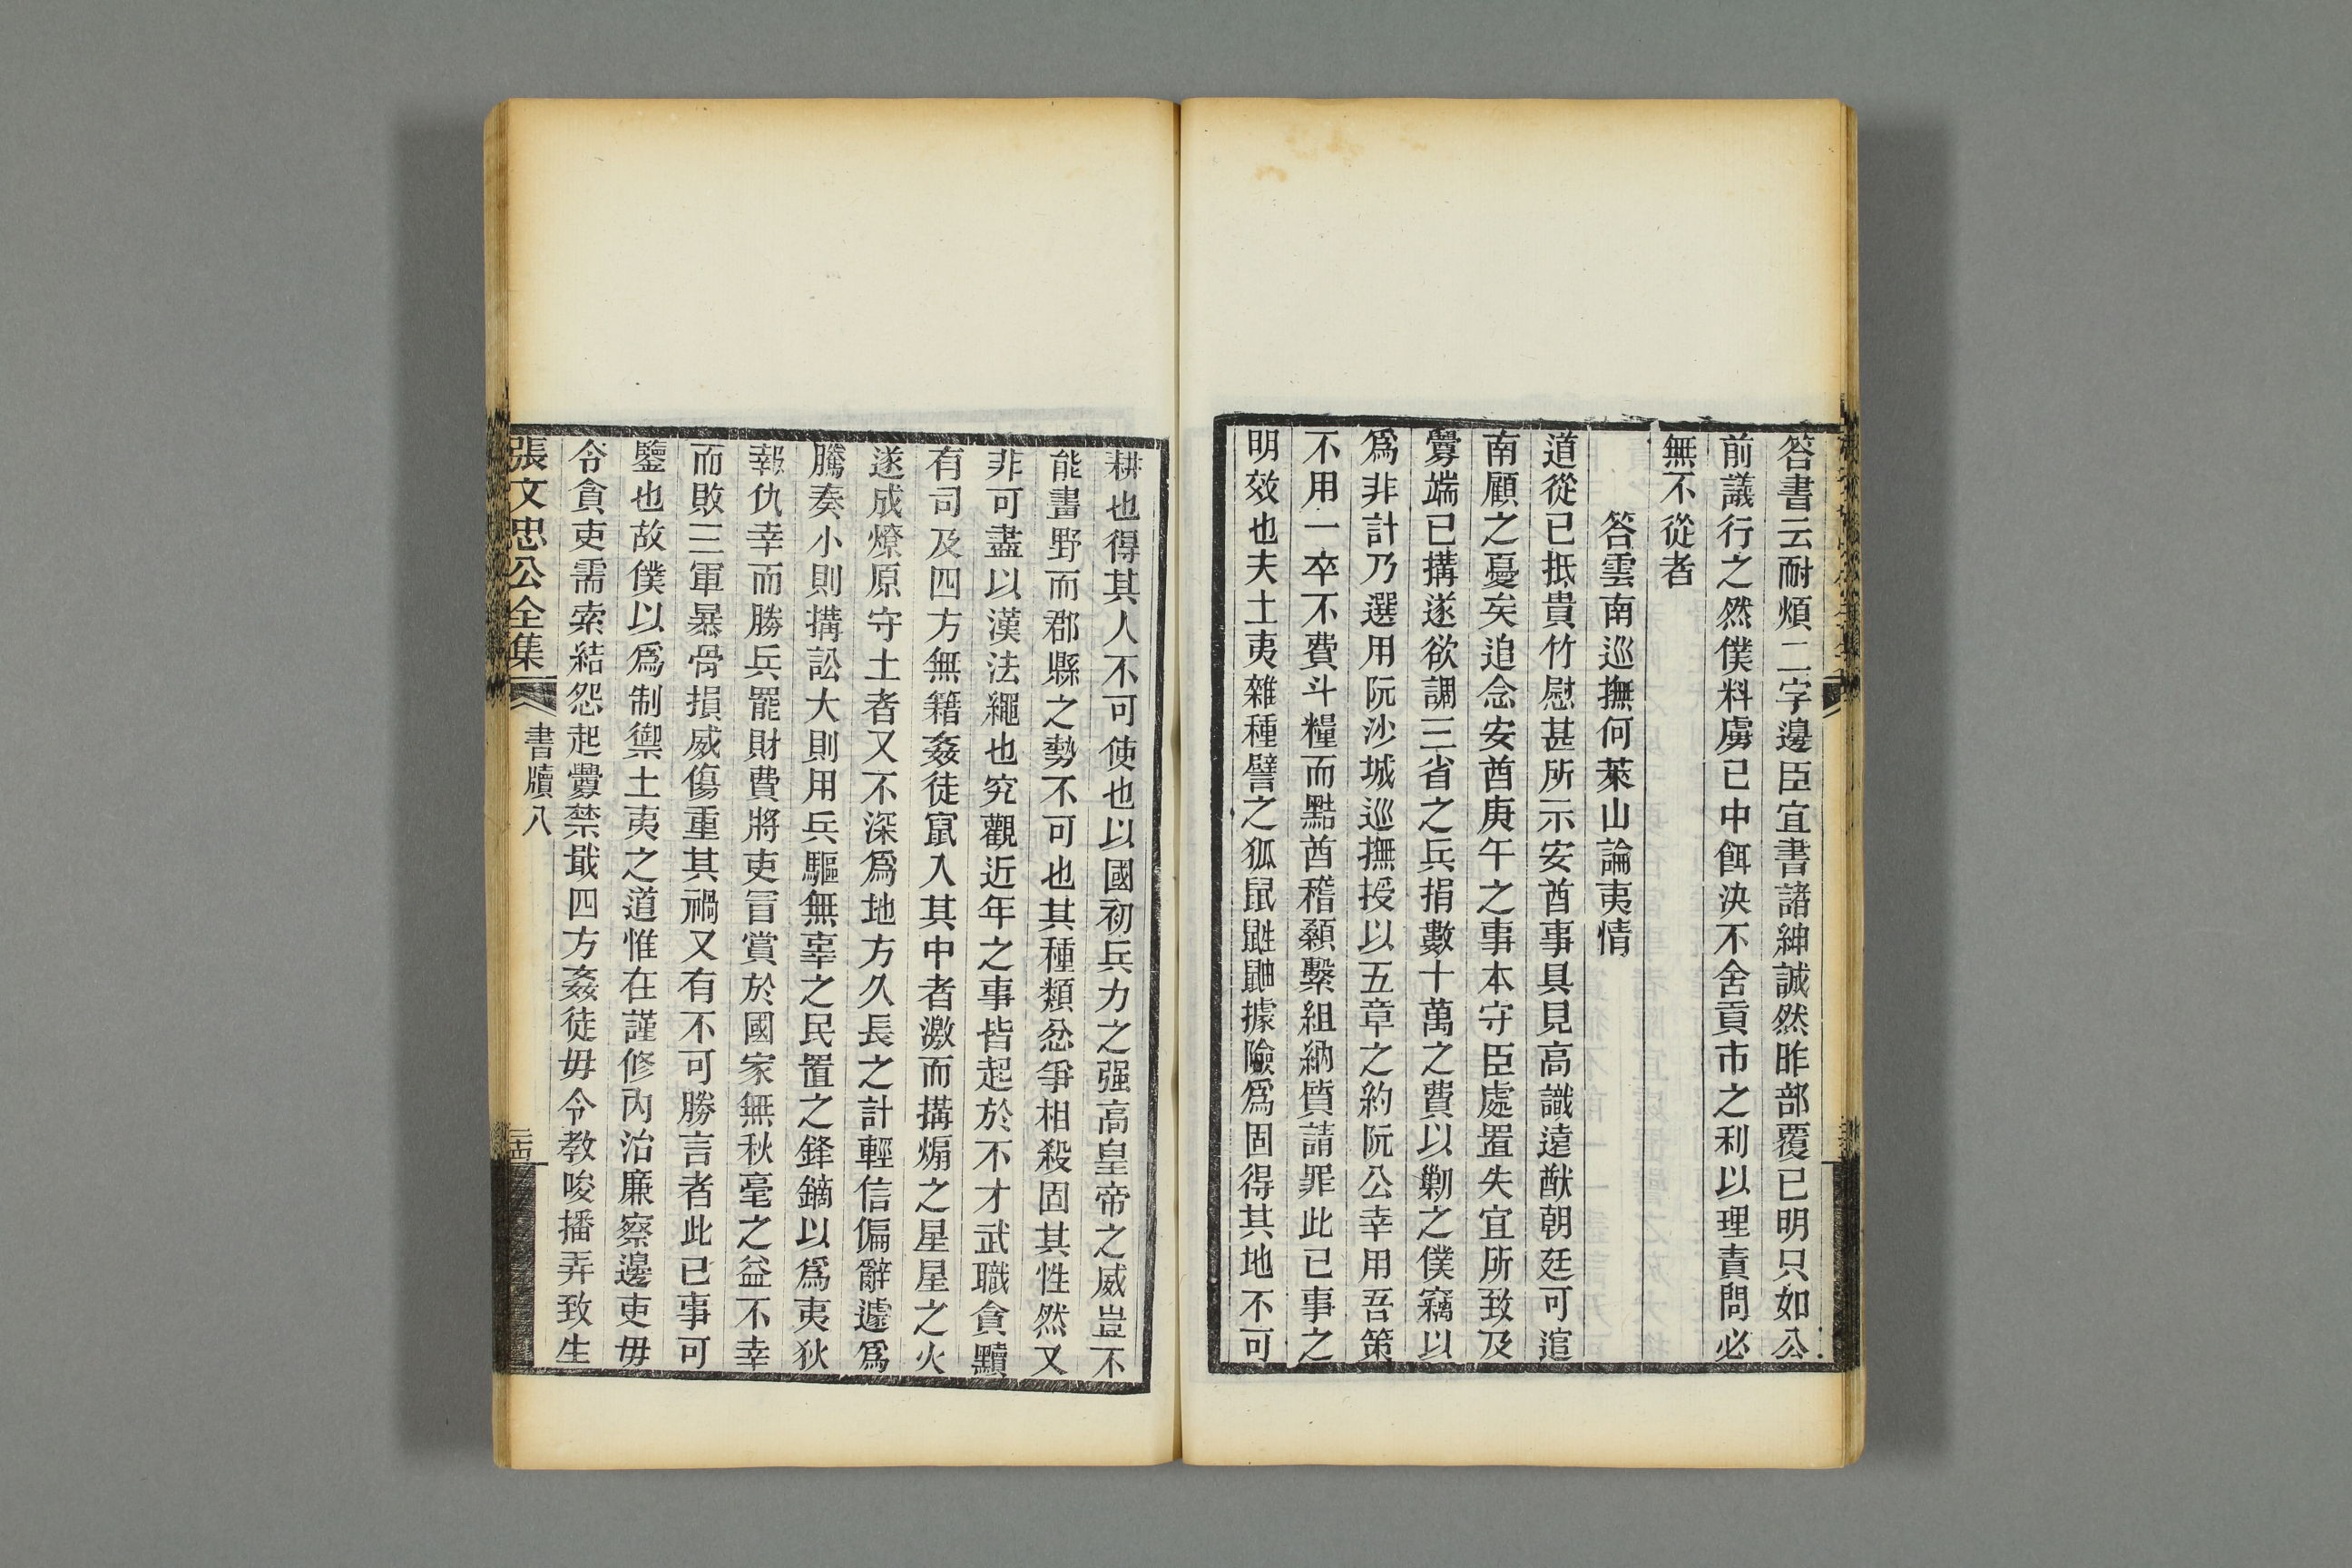 答書云耐煩二字邊臣宜書諸紳誠然昨部覆已明只如公
前議行之然僕料虜已中餌決不舍貢市之利以理責問必
無不從者
答雲南巡撫何萊山論夷情
道從已抵貴竹慰甚所示安酋事具見高識遠猷朝廷可逭
南顧之憂矣追念安酋庚午之事本守臣處置失宜所致及
釁端已搆遂欲調三省之兵捐數十萬之費以勦之僕竊以
爲非計乃選用阮沙城巡撫授以五章之約阮公幸用吾策
不用一卒不費斗糧而黠酋稽顙繫組納質請罪此已事之
明效也夫土夷雜種譬之狐鼠鼪鼬據險爲固得其地不可
耕也得其人不可使也以國初兵力之强高皇帝之威豈不
能畫野而郡縣之勢不可也其種類忿爭相殺固其性然又
非可盡以漢法繩也究觀近年之事皆起於不才武職貪黷
有司及四方無籍姦徒竄入其中者激而搆煽之星星之火
遂成燎原守土者又不深爲地方久長之計輕信偏辭遽爲
騰奏小則搆訟大則用兵驅無辜之民置之鋒鏑以爲夷狄
報仇幸而勝兵罷財費將吏冒賞於國家無秋毫之益不幸
而敗三軍暴骨損威傷重其禍又有不可勝言者此已事可
鑒也故僕以爲制禦土夷之道惟在謹修內治廉察邊吏毋
令貪吏需索結怨起釁禁戢四方姦徒毋令教唆播弄致生
張文忠公全集 書牘八